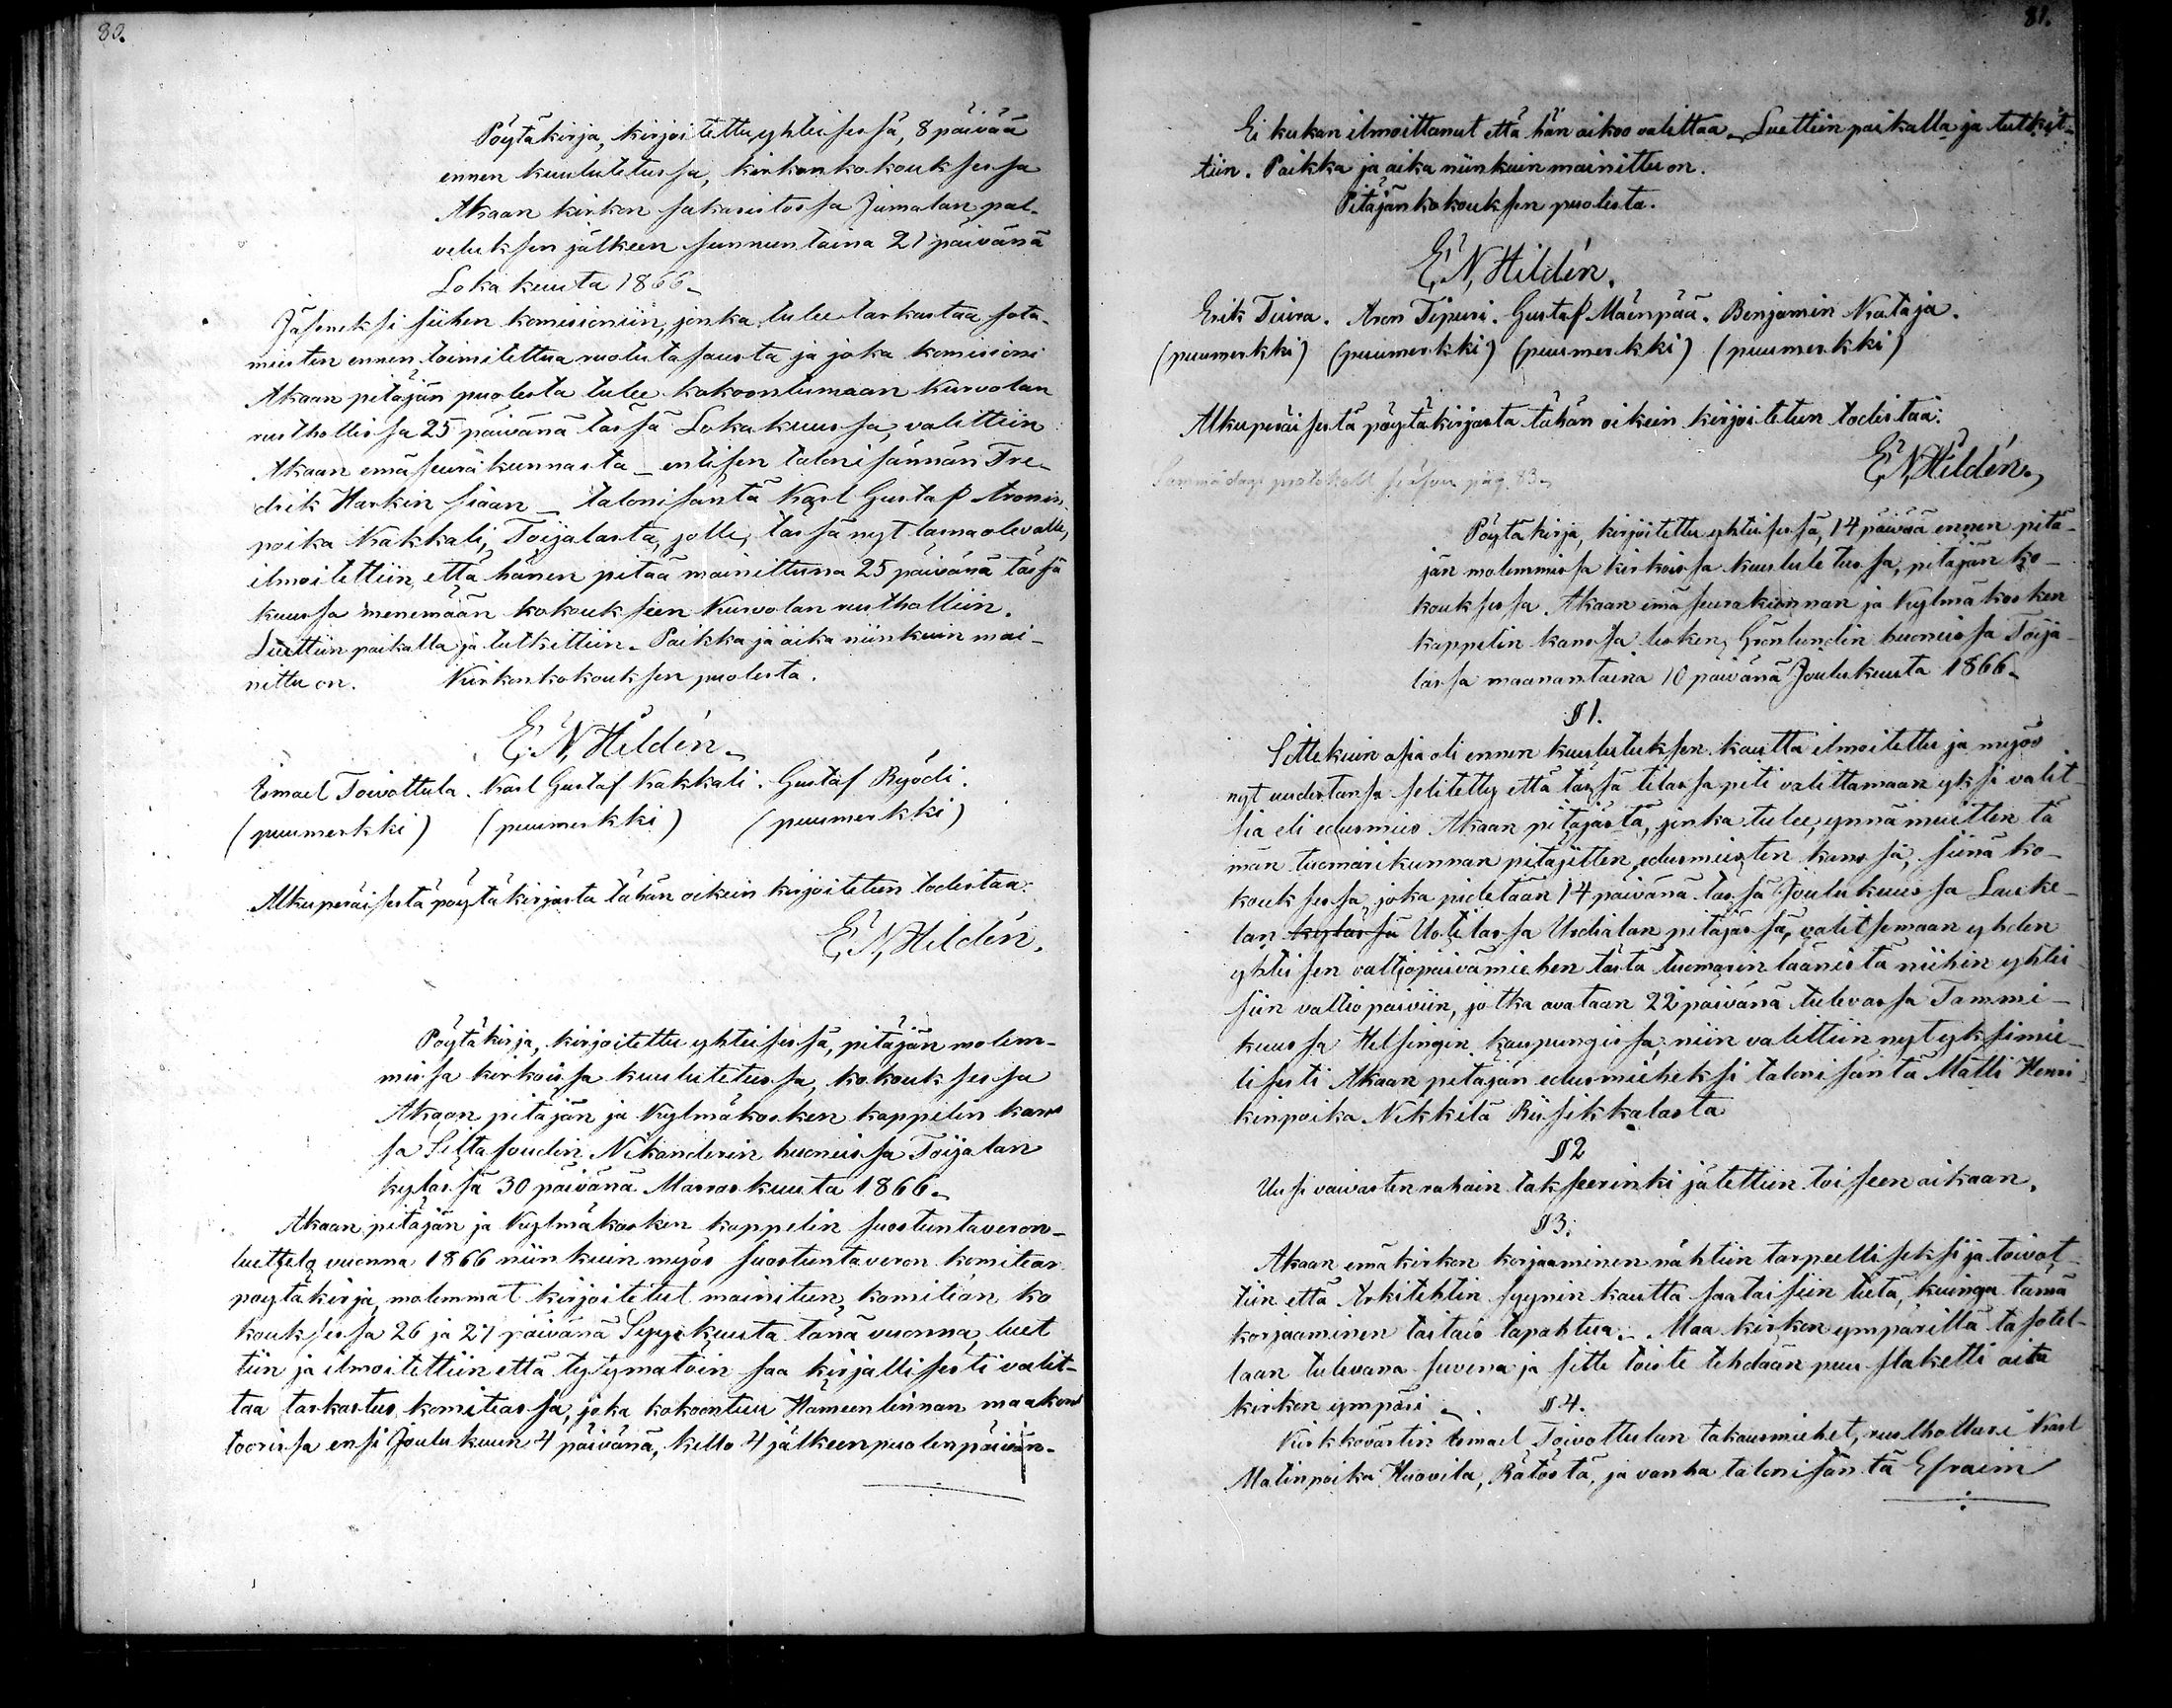 80.
Pöytäkirja, kirjoitettu yhteisessä, 8 päivää
ennen kuulutetussa, kirkonkokouksessa
Akaan kirkon sakaristossa Jumalan pal-
veluksen jälkeen sunnuntaina 21 päivänä
Lokakuuta 1866.
Jäseneksi siihen komissioniin, jonka tulee tarkastaa sota-
miesten ennen toimitettua ruotutasausta ja joka komissioni
Akaan pitäjän puolesta tulee kokoontumaan Kurvolan
rusthollissa 25 päivänä tässä Lokakuussa, valittiin
Akaan emäseurakunnasta _ entisen talonisännän Fre-
drik Harkin siaan _ talonisäntä Karl Gustaf Aronin-
poika Kakkali, Toijalasta, jolle, tässä nyt läsnäolevalle,
ilmoitettiin, että hänen pitää mainittuna 25 päivänä tässä
kuussa menemään kokoukseen Kurvolan rustholliin.
Luettiin paikalla ja tutkittiin. Paikka ja aika niinkuin mai-
nittu on. Kirkonkokouksen puolesta.
E. N. Hildén.
Ismael Toivottula. Karl Gustaf Kakkali. Gustaf Ryödi.
(puumerkki) (puumerkki) (puumerkki)
Alkuperäisestä pöytäkirjasta tähän oikein kirjoitetun todistaa:
E. N. Hildén.
Pöytäkirja, kirjoitettu yhteisessä, pitäjän molem-
missa kirkoissa kuulutetussa, kokouksessa
Akaan pitäjän ja Kylmäkosken kappelin kans
sa Siltafoudin Nikanderin huoneissa Toijalan
kylässä 30 päivänä Marraskuuta 1866.
Akaan pitäjän ja Kylmäkosken kappelin suostuntaveron-
luettelo vuonna 1866 niinkuin myös suostuntaveron komitean
pöytäkirja, molemmat kirjoitetut mainitun komitéan ko
kouksessa 26 ja 27 päivänä Syyskuuta tänä vuonna, luet
tiin ja ilmoitettiin että tytymätöin saa kirjallisesti valit-
taa tarkastus komiteassa, joka kokoontuu Hämeenlinnan maakont
toorissa ensi Joulukuun 4 päivänä, kello 4 jälkeenpuolenpäivän-
81.
Ei kukan ilmoittanut että hän aikoo valittaa. Luettiin paikalla ja tutkit-
tiin. Paikka ja aika niinkuin mainittu on.
Pitäjänkokouksen puolesta.
E. N. Hildén.
Erik Tiura. Aron Tipuri. Gustaf Mäenpää. Benjamin Kataja.
(puumerkki) (puumerkki) (puumerkki) (puumerkki)
Alkuperäisestä pöytäkirjasta tähän oikein kirjoitetun todistaa:
E. N. Hildén.
Samma dags protokoll pag. 83.
Pöytäkirja, kirjoitettu yhteisessä, 14 päivää ennen pitä-
jän molemmissa kirkoissa kuulutetussa, pitäjän ko-
kouksessa Akaan emäseurakunnan ja Kylmäkosken
kappelin kanssa lesken Grönlundin huoneissa Toija-
lassa maanantaina 10 päivänä Joulukuuta 1866.
§ 1.
Sittekuin asia oli ennen kuulutuksen kautta ilmoitettu ja myös
nyt uudestansa selitetty että tässä tilassa piti valittamaan yksi valit-
sia eli edusmies Akaan pitäjästä, jonka tulee, ynnä muitten tä
män tuomarikunnan pitäjitten edusmiesten kanssa, siinä ko-
kouksessa, joka pidetään 14 päivänä tässä Joulukuussa Lauke-
lan kylässä Uotilassa Urdialan pitäjässä, valitsemaan yhden
yhteisen valtiopäivämiehen tästä tuomarin läänistä niihin yhtei-
siin valtiopäiviin, jotka avataan 22 päivänä tulevassa Tammi-
kuussa Helsingin kaupungissa; niin valittiin nyt yksimie-
lisesti Akaan pitäjän edusmieheksi talonisäntä Matti Henri-
kinpoika Nikkilä Riisikkalasta
§ 2
Uusi vaivasten rahain takseerinki jätettiin toiseen aikaan.
§ 3.
Akaan emäkirkon korjaaminen nähtiin tarpeelliseksi ja toivot-
tiin että Arkitehtin syynin kautta saataisiin tietä, kuinga tämä
korjaaminen taitais tapahtua. Maa kirkon ympärillä tasotel-
laan tulevana suvena ja sitte toiste tehdään puu staketti aita
kirkon ympäri. § 4.
Kirkkovärtin Ismael Toivottulan takausmiehet, rusthollari Karl
Matinpoika Huovila, Rätöstä, ja vanha talonisäntä Efraim